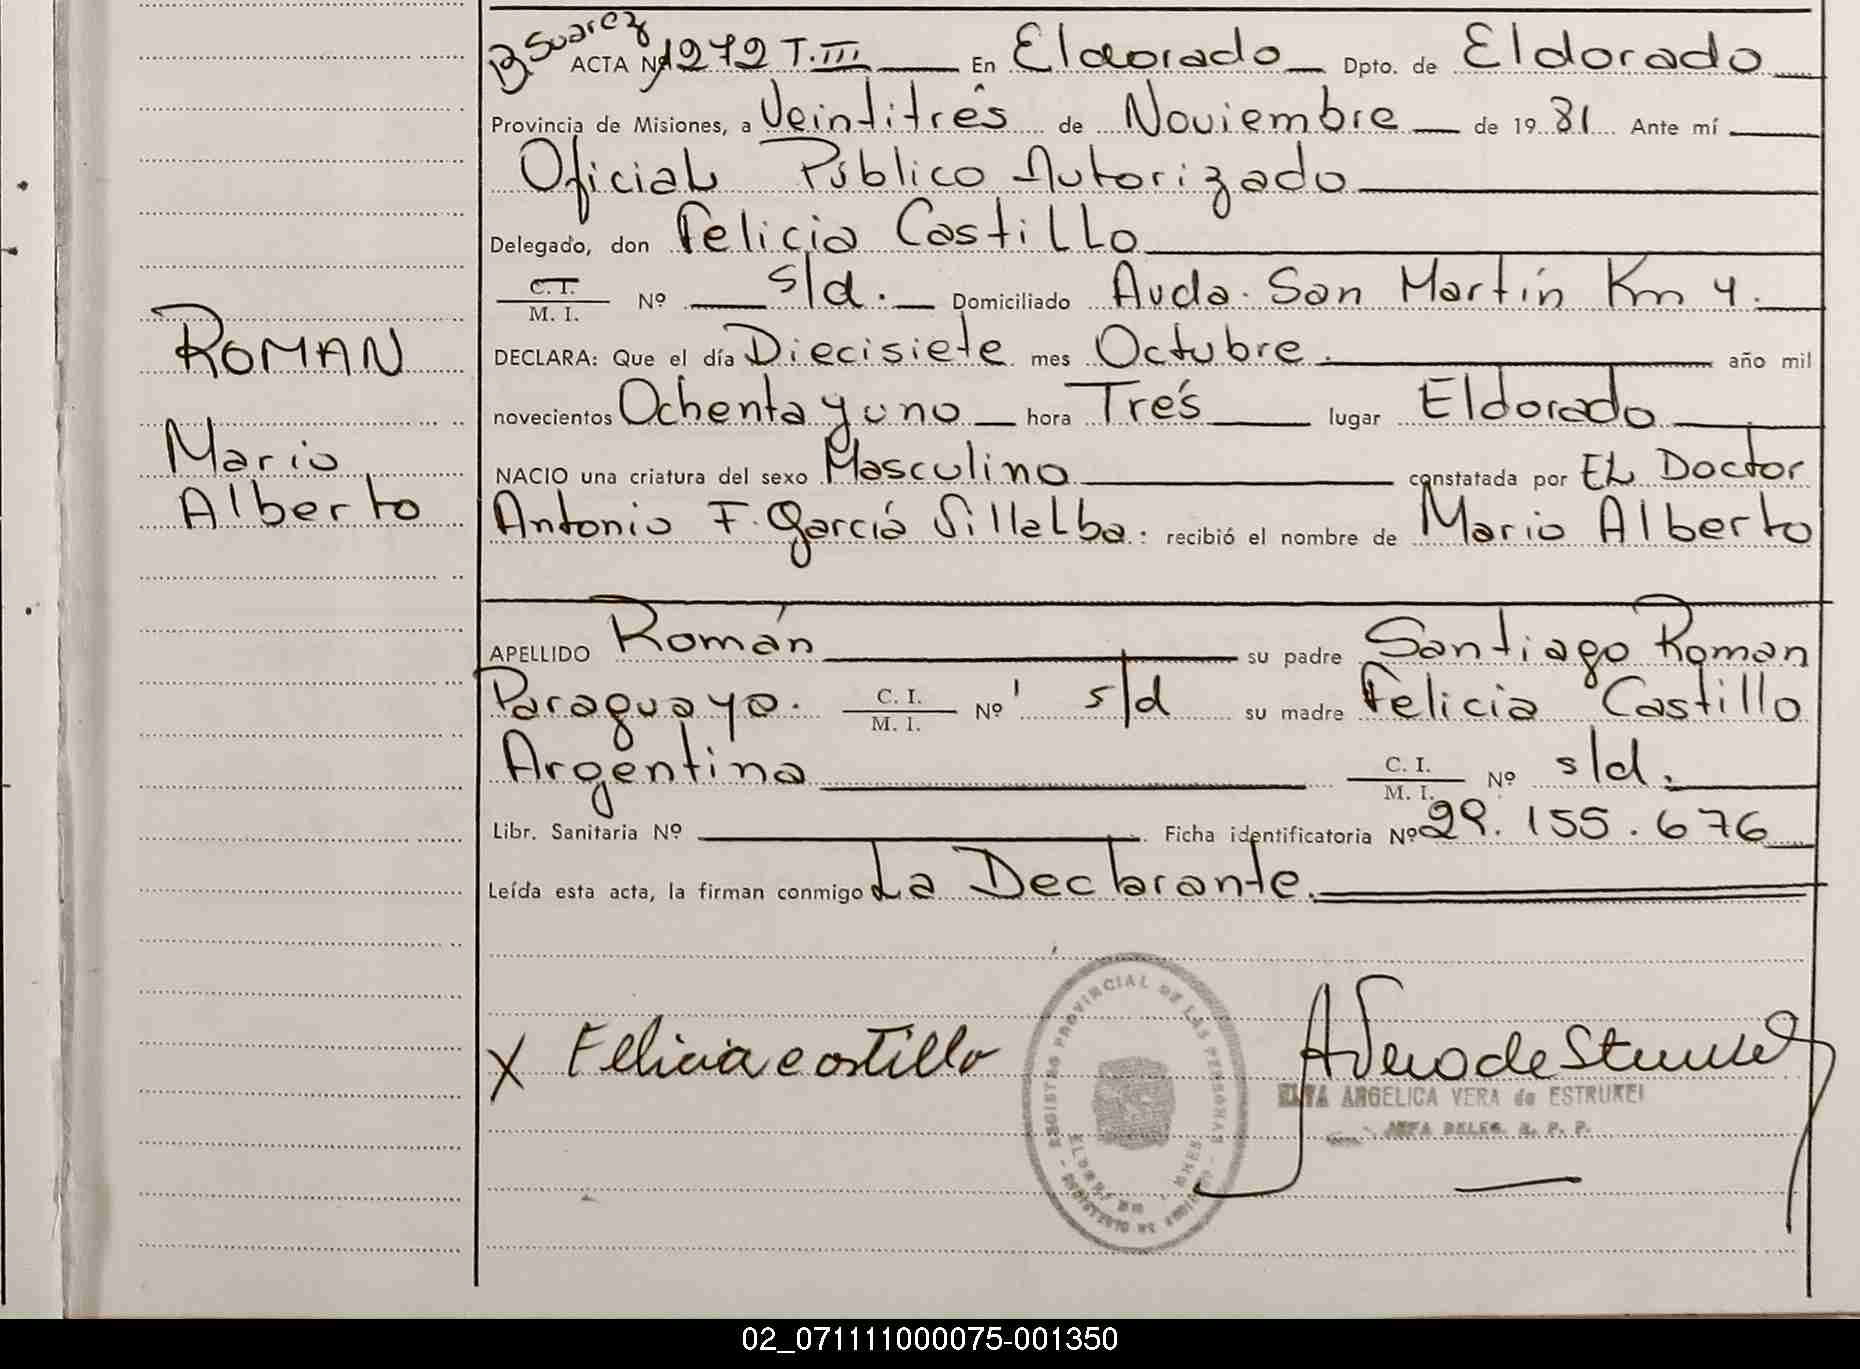 B. Suarez
ACTA Nº 1272 T. III En Eldorado Dpto. de Eldorado
Provincia de Misiones, a Veintitrés de Noviembre de 1981 Ante mí
Oficial Público Autorizado
Delegado, don Felicia Castillo
C. I. M. I. Nº s/d. Domiciliado Avda. San Martín Km 4.
DECLARA: Que el día Diecisiete mes Octubre. año mil
novecientos Ochenta y uno hora Tres lugar Eldorado
NACIO una criatura del sexo Masculino constatada por EL Doctor
Antonio F. García Sillalba: recibió el nombre de Mario Alberto
ROMAN
Mario
Alberto
APELLIDO Román su padre Santiago Roman
Paraguayo. C. I. M. I. Nº s/d su madre Felicia Castillo
Argentina C. I. M. I. Nº s/d.
Libr. Sanitaria Nº Ficha identificatoria Nº 29.155.676
Leída esta acta, la firman conmigo La Declarante.
REGISTRO PROVINCIAL DE LAS PERSONAS
X Felicia castillo
ANGELICA VERA de ESTRUKEI
JEFA DELEG. R. P. P.
02_071111000075-001350